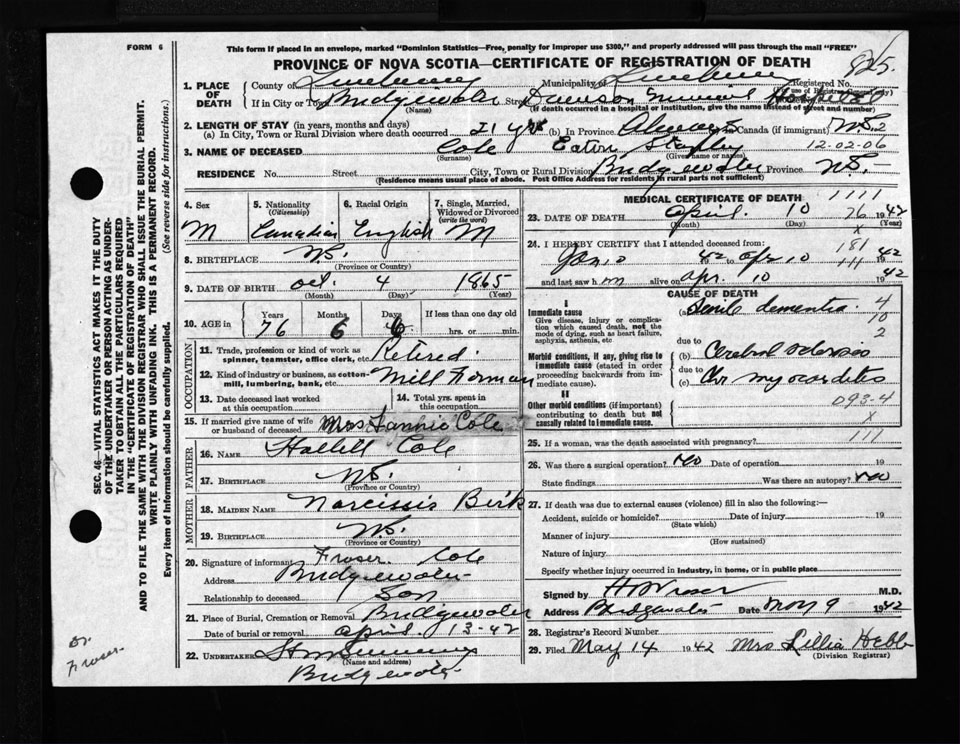 FORM 6
This form if placed in an envelope, marked "Dominion Statistics—Free, penalty for improper use $300," and properly addressed will pass through the mail "FREE"
PROVINCE OF NOVA SCOTIA—CERTIFICATE OF REGISTRATION OF DEATH
825.
1. PLACE OF DEATH County of Lunenburg Municipality of Lunenburg Registered No.
If in City or Town Bridgewater Street Dawson Memorial Hospital
(Name) (If death occurred in a hospital or institution, give its name instead of street and number)
2. LENGTH OF STAY (in years, months and days)
(a) In City, Town or Rural Division where death occurred 21 yrs (b) In Province Always Canada (if immigrant)
12-02-06
3. NAME OF DECEASED Cole Eaton
(Surname) (Given name or names)
RESIDENCE No. Street City, Town or Rural Division Bridgewater Province N.S.
(Residence means usual place of abode. Post Office Address for residents in rural parts not sufficient)
4. Sex 5. Nationality (Citizenship) 6. Racial Origin 7. Single, Married, Widowed or Divorced (write the word)
M Canadian English M
8. BIRTHPLACE N.S.
(Province or Country)
9. DATE OF BIRTH Oct. 4 1865
(Month) (Day) (Year)
10. AGE in Years Months Days If less than one day
76 6 6 hrs. or min.
OCCUPATION
11. Trade, profession or kind of work as spinner, teamster, office clerk, etc. Retired.
12. Kind of industry or business, as cotton-mill, lumbering, bank, etc. Mill Forman
13. Date deceased last worked at this occupation 14. Total yrs. spent in this occupation
15. If married give name of wife or husband of deceased Mrs Fannie Cole
FATHER
16. NAME Cole
17. BIRTHPLACE N.S.
(Province or Country)
MOTHER
18. MAIDEN NAME Narcissis
19. BIRTHPLACE N.S.
(Province or Country)
20. Signature of informant Fraser Cole
Address Bridgewater
Relationship to deceased Son
21. Place of Burial, Cremation or Removal Bridgewater
Date of burial or removal April 13-42
22. UNDERTAKER
(Name and address)
Bridgewater
MEDICAL CERTIFICATE OF DEATH 1111
23. DATE OF DEATH April. 10 76 1942
(Month) (Day) (Year)
X
24. I HEREBY CERTIFY that I attended deceased from 181
Jan 10 42 to Apr 10 111 1942
and last saw h m alive on Apr. 10 1942
CAUSE OF DEATH
I
Immediate cause
Give disease, injury or complication which caused death, not the mode of dying, such as heart failure, asphyxia, asthenia, etc.
(a) Senile dementia 4
10
2
due to
Morbid conditions, if any, giving rise to immediate cause (stated in order proceeding backwards from immediate cause).
(b) Cerebral sclerosis
due to
(c) Chr myocarditis
II
Other morbid conditions (if important) contributing to death but not causally related to immediate cause.
093-4
X
25. If a woman, was the death associated with pregnancy? 111
26. Was there a surgical operation? no Date of operation 19
State findings Was there an autopsy? no
27. If death was due to external causes (violence) fill in also the following:—
Accident, suicide or homicide? Date of injury 19
(State which)
Manner of injury
(How sustained)
Nature of injury
Specify whether injury occurred in industry, in home, or in public place
Signed by M.D.
Address Bridgewater Date May 9 1942
28. Registrar's Record Number
29. Filed May 14 1942 Mrs Lillia Hebb
(Division Registrar)
SEC. 46—VITAL STATISTICS ACT MAKES IT THE DUTY
OF THE UNDERTAKER OR PERSON ACTING AS UNDERTAKER TO OBTAIN ALL THE PARTICULARS REQUIRED
IN THE "CERTIFICATE OF REGISTRATION OF DEATH"
AND TO FILE THE SAME WITH THE DIVISION REGISTRAR WHO SHALL ISSUE THE BURIAL PERMIT.
WRITE PLAINLY WITH UNFADING INK. THIS IS A PERMANENT RECORD.
Every item of Information should be carefully supplied. (See reverse side for instructions.)
Dr.
Fraser.